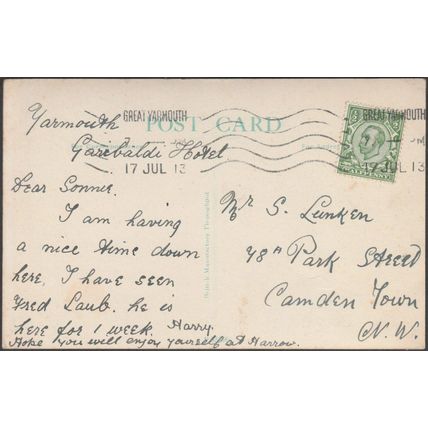 Yarmouth
Garibaldi Hotel
GREAT YARMOUTH
17 JUL 13
POST CARD
GREAT YARMOUTH
JUL 13
Dear Sonnie.
I am having
a nice time down
here. I have seen
Fred Laub. he is
here for 1 week. Harry.
Hope you will enjoy yourself at Harrow.
British Manufactory Throughout
Mr S. Lunken
48A Park Street
Camden Town
N.W.